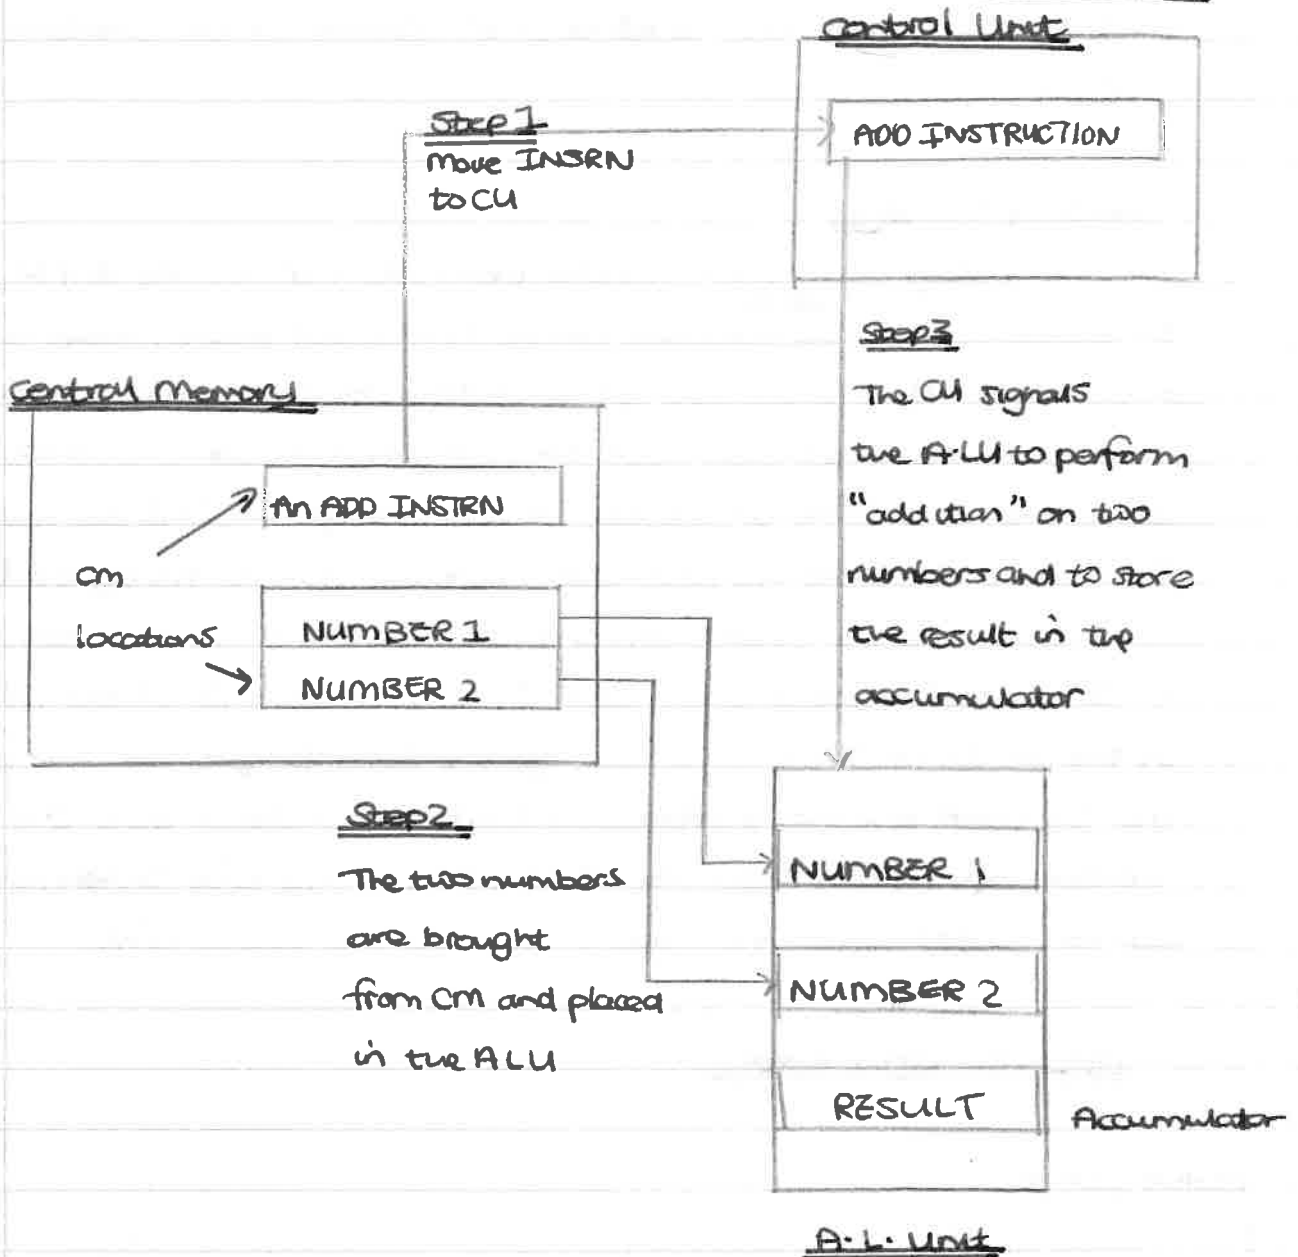 Control Unit
ADD INSTRUCTION
Step 1
Move INSRN
to CU
Step 3
The CU signals
the A.LU to perform
"addition" on two
numbers and to store
the result in the
accumulator
Central Memory
An ADD INSTRN
CM
locations
NUMBER 1
NUMBER 2
Step 2
The two numbers
are brought
from CM and placed
in the ALU
NUMBER 1
NUMBER 2
RESULT
Accumulator
A.L. Unit